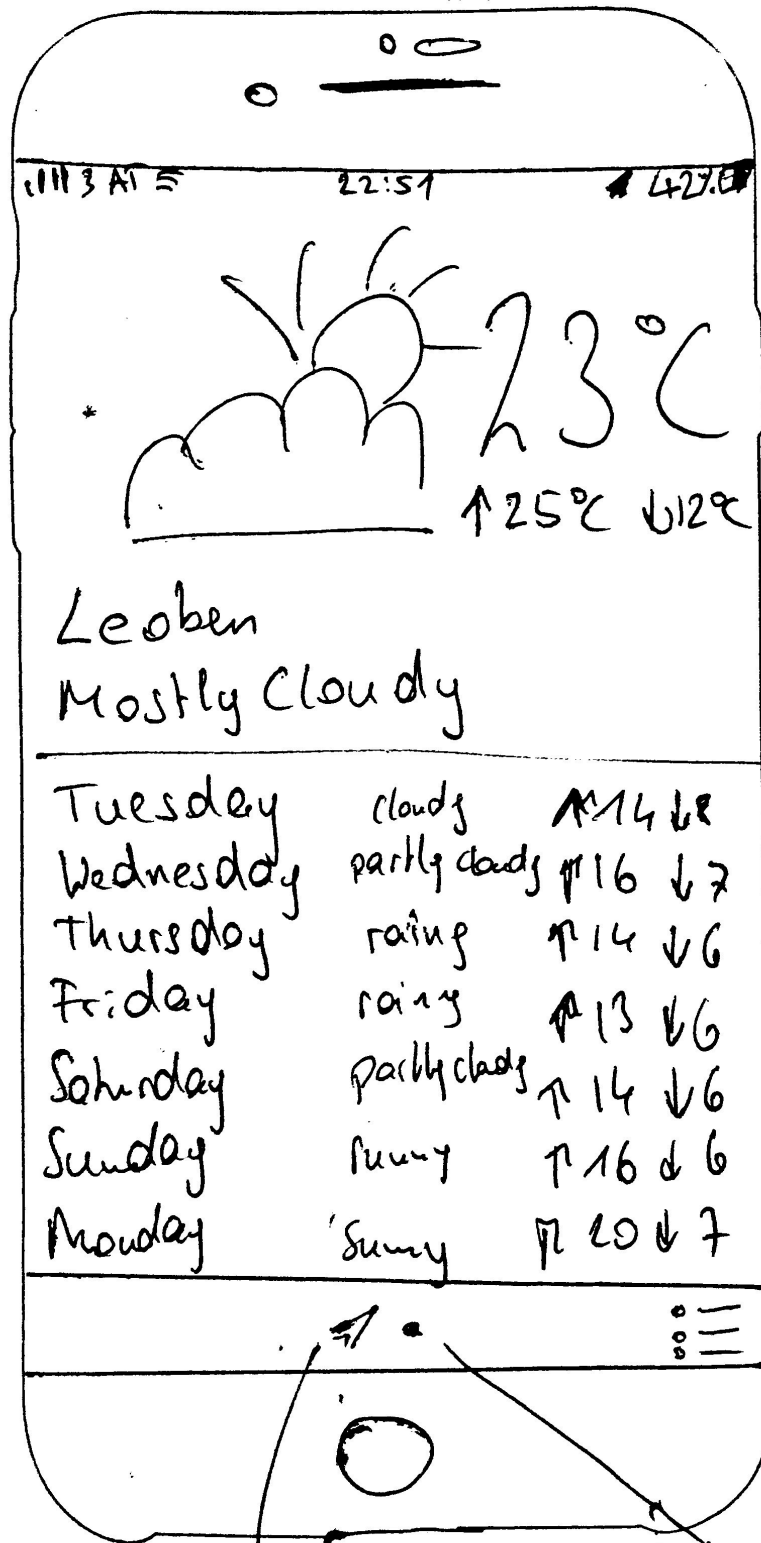 3 AT 22:51 42%
23°C
↑25°C ↓12°C
Leoben
Mostly Cloudy
Tuesday cloudy ↑14 ↓8
Wednesday partly cloudy ↑16 ↓7
Thursday rainy ↑14 ↓6
Friday rainy ↑13 ↓6
Saturday partly cloudy ↑14 ↓6
Sunday sunny ↑16 ↓6
Monday sunny ↑20 ↓7